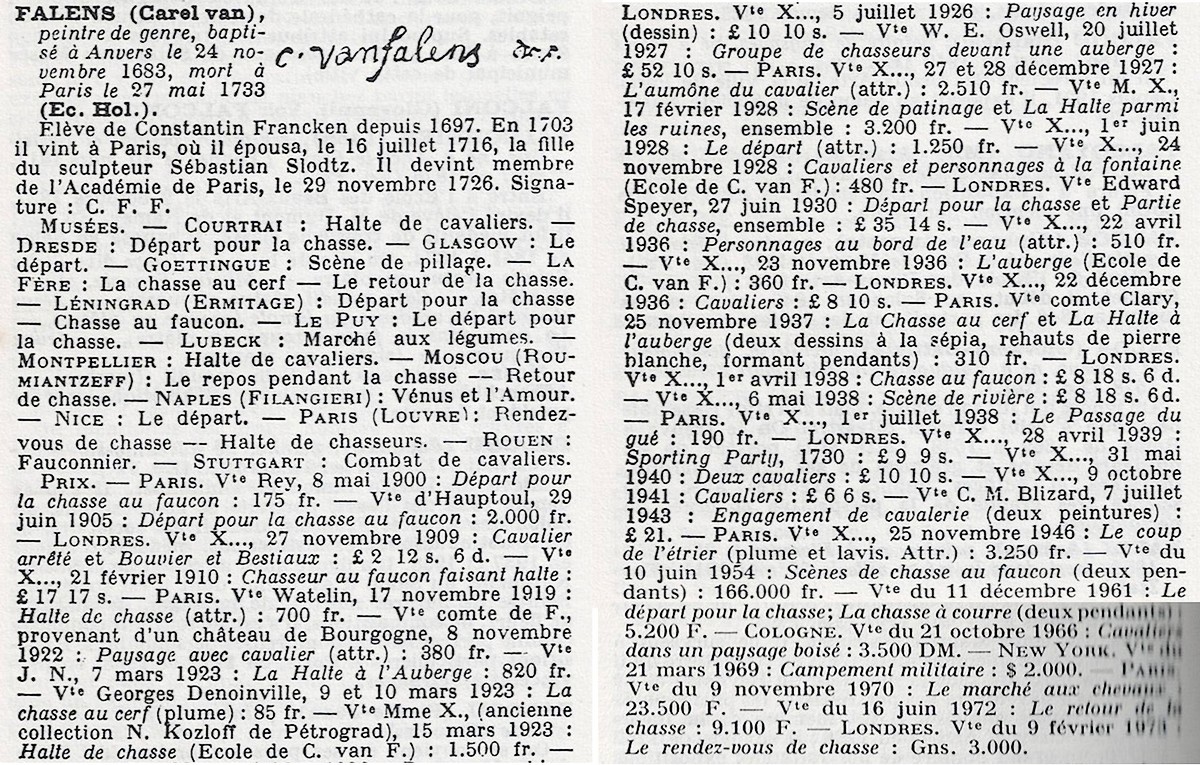 FALENS (Carel van),
peintre de genre, bapti-
sé à Anvers le 24 no-
vembre 1683, mort à
Paris le 27 mai 1733
(Ec. Hol.).
C. vanfalens
Elève de Constantin Francken depuis 1697. En 1703
il vint à Paris, où il épousa, le 16 juillet 1716, la fille
du sculpteur Sébastian Slodtz. Il devint membre
de l'Académie de Paris, le 29 novembre 1726. Signa-
ture : C. F. F.
MUSÉES. — COURTRAI : Halte de cavaliers. —
DRESDE : Départ pour la chasse. — GLASGOW : Le
départ. — GOETTINGUE : Scène de pillage. — LA
FÈRE : La chasse au cerf — Le retour de la chasse.
— LÉNINGRAD (ERMITAGE) : Départ pour la chasse
— Chasse au faucon. — LE PUY : Le départ pour
la chasse. — LUBECK : Marché aux légumes. —
MONTPELLIER : Halte de cavaliers. — MOSCOU (ROU-
MIANTZEFF) : Le repos pendant la chasse — Retour
de chasse. — NAPLES (FILANGIERI) : Vénus et l'Amour.
— NICE : Le départ. — PARIS (LOUVRE) : Rendez-
vous de chasse -- Halte de chasseurs. — ROUEN :
Fauconnier. — STUTTGART : Combat de cavaliers.
PRIX. — PARIS. Vte Rey, 8 mai 1900 : Départ pour
la chasse au faucon : 175 fr. — Vte d'Hauptoul, 29
juin 1905 : Départ pour la chasse au faucon : 2.000 fr.
— LONDRES. Vte X..., 27 novembre 1909 : Cavalier
arrêté et Bouvier et Bestiaux : £ 2 12 s. 6 d. — Vte
X..., 21 février 1910 : Chasseur au faucon faisant halte :
£ 17 17 s. — PARIS. Vte Watelin, 17 novembre 1919 :
Halte de chasse (attr.) : 700 fr. — Vte comte de F.,
provenant d'un château de Bourgogne, 8 novembre
1922 : Paysage avec cavalier (attr.) : 380 fr. — Vte
J. N., 7 mars 1923 : La Halte à l'Auberge : 820 fr.
— Vte Georges Denoinville, 9 et 10 mars 1923 : La
chasse au cerf (plume) : 85 fr. — Vte Mme X., (ancienne
collection N. Kozloff de Pétrograd), 15 mars 1923 :
Halte de chasse (Ecole de C. van F.) : 1.500 fr. —
LONDRES. Vte X..., 5 juillet 1926 : Paysage en hiver
(dessin) : £ 10 10 s. — Vte W. E. Oswell, 20 juillet
1927 : Groupe de chasseurs devant une auberge :
£ 52 10 s. — PARIS. Vte X..., 27 et 28 décembre 1927 :
L'aumône du cavalier (attr.) : 2.510 fr. — Vte M. X.,
17 février 1928 : Scène de patinage et La Halte parmi
les ruines, ensemble : 3.200 fr. — Vte X..., 1er juin
1928 : Le départ (attr.) : 1.250 fr. — Vte X..., 24
novembre 1928 : Cavaliers et personnages à la fontaine
(Ecole de C. van F.) : 480 fr. — LONDRES. Vte Edward
Speyer, 27 juin 1930 : Départ pour la chasse et Partie
de chasse, ensemble : £ 35 14 s. — Vte X..., 22 avril
1936 : Personnages au bord de l'eau (attr.) : 510 fr.
— Vte X..., 23 novembre 1936 : L'auberge (Ecole de
C. van F.) : 360 fr. — LONDRES. Vte X..., 22 décembre
1936 : Cavaliers : £ 8 10 s. — PARIS. Vte comte Clary,
25 novembre 1937 : La Chasse au cerf et La Halte à
l'auberge (deux dessins à la sépia, rehauts de pierre
blanche, formant pendants) : 310 fr. — LONDRES.
Vte X..., 1er avril 1938 : Chasse au faucon : £ 8 18 s. 6 d.
— Vte X..., 6 mai 1938 : Scène de rivière : £ 8 18 s. 6d.
— PARIS. Vte X..., 1er juillet 1938 : Le Passage du
gué : 190 fr. — LONDRES. Vte X..., 28 avril 1939 :
Sporting Party, 1730 : £ 9 9 s. — Vte X..., 31 mai
1940 : Deux cavaliers : £ 10 10 s. — Vte X..., 9 octobre
1941 : Cavaliers : £ 6 6 s. — Vte C. M. Blizard, 7 juillet
1943 : Engagement de cavalerie (deux peintures) :
£ 21. — PARIS. Vte X..., 25 novembre 1946 : Le coup
de l'étrier (plume et lavis. Attr.) : 3.250 fr. — Vte du
10 juin 1954 : Scènes de chasse au faucon (deux pen-
dants) : 166.000 fr. — Vte du 11 décembre 1961 : Le
départ pour la chasse; La chasse à courre (deux pendants) :
5.200 F. — COLOGNE. Vte du 21 octobre 1966 : Cavaliers
dans un paysage boisé : 3.500 DM. — NEW YORK. Vte du
21 mars 1969 : Campement militaire : $ 2.000. — PARIS
Vte du 9 novembre 1970 : Le marché aux chevaux :
23.500 F. — Vte du 16 juin 1972 : Le retour de la
chasse : 9.100 F. — LONDRES. Vte du 9 février
Le rendez-vous de chasse : Gns. 3.000.